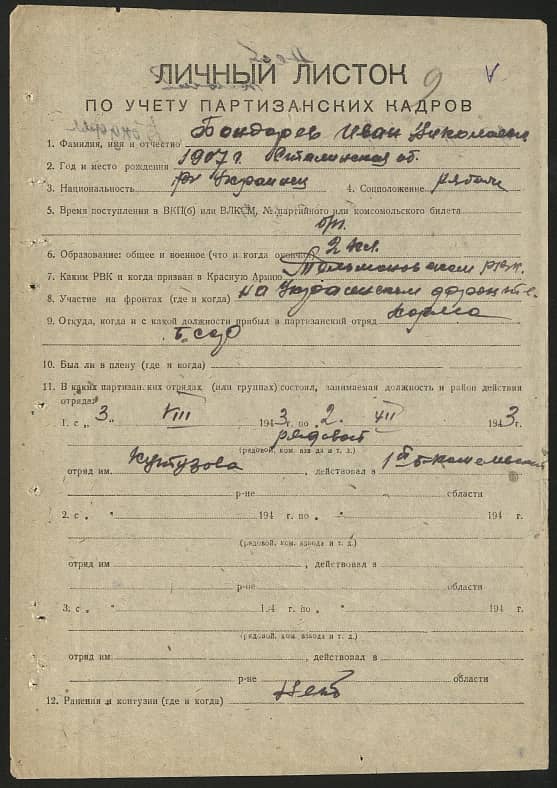 ЛИЧНЫЙ ЛИСТОК
9 V
ПО УЧЕТУ ПАРТИЗАНСКИХ КАДРОВ
1. Фамилия, имя и отчество Бондарев Иван Николаевич
2. Год и место рождения 1907 г. Сталинская об.
3. Национальность Украинец 4. Соцположение рабочий
5. Время поступления в ВКП(б) или ВЛКСМ, № партийного или комсомольского билета
б/п.
6. Образование: общее и военное (что и когда окончил) 2 кл.
7. Каким РВК и когда призван в Красную Армию Тельмановским рвк.
8. Участие на фронтах (где и когда) на Украинском фронте.
9. Откуда, когда и с какой должности прибыл в партизанский отряд
10. Был ли в плену (где и когда)
11. В каких партизан.ких отрядах (или группах) состоял, занимаемая должность и район действия
отряда:
1. с „ 3 " VIII 1943 г. по „2. XII 1943 г.
рядовой
(рядовой, ком. взвода и т. д.)
отряд им. Кутузова , действовал в
р-не области
2. с „ " 194 г. по „ " 194 г.
(рядовой, ком. взвода и т. д.)
отряд им , действовал в
р-не области
3. с „ " 194 г. по „ " 194 г.
(рядовой, ком. взвода и т. д.)
отряд им , действовал в
р-не области
12. Ранения и контузии (где и когда) Нет